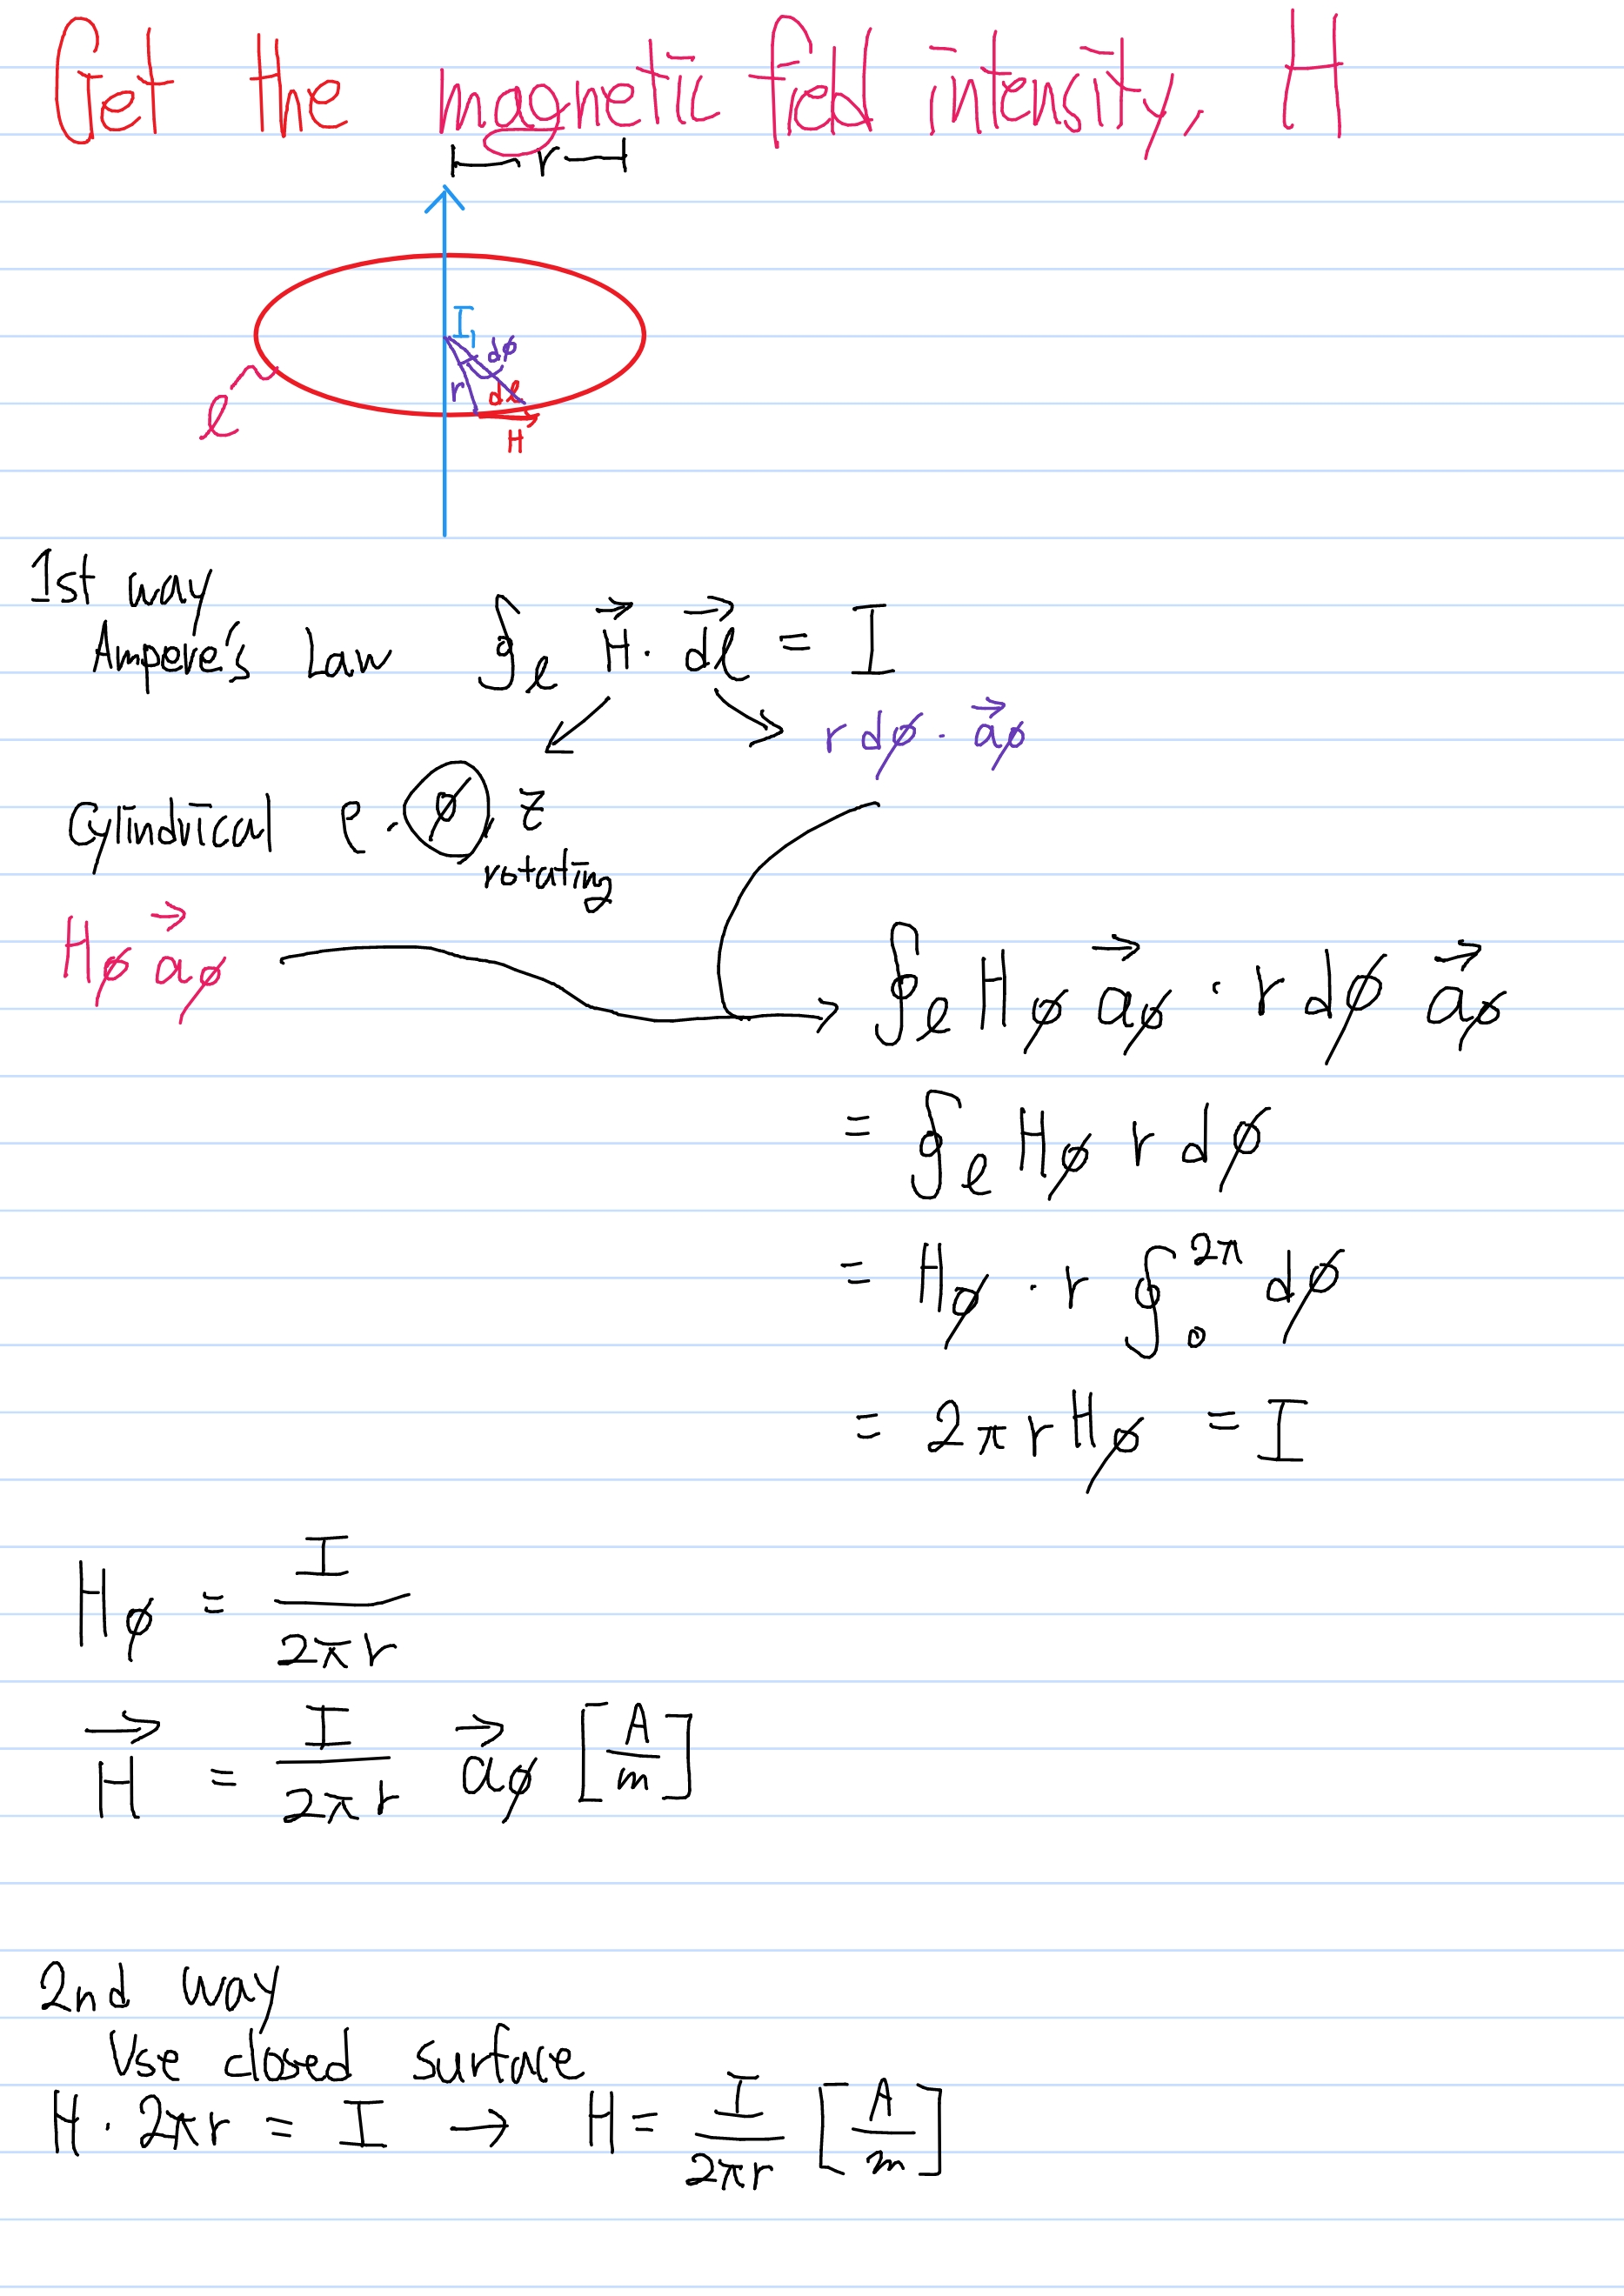 Get the magnetic field intensity, H
r
I,
dφ
r dl
l
H
1st way
Ampere's Law ∮l H⃗ · dl⃗ = I
r dφ · a⃗φ
Cylindrical ρ. φ, z
rotating
Hφ a⃗φ
∮l Hφ a⃗φ · r dφ a⃗φ
= ∮l Hφ r dφ
= Hφ · r ∮₀^2π dφ
= 2πr Hφ = I
Hφ = I / 2πr
H⃗ = I / 2πr a⃗φ [A/m]
2nd way
Use closed surface
H · 2πr = I → H = I / 2πr [A/m]